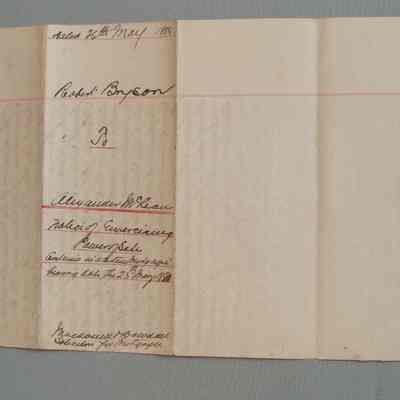 Dated 26th May 188
Robert Bryson
To
Alexander McLean
Notice of Exercising
Power of Sale
contained in a certain Mortgage
bearing date the 25th May 188
Solicitors for Mortgagee